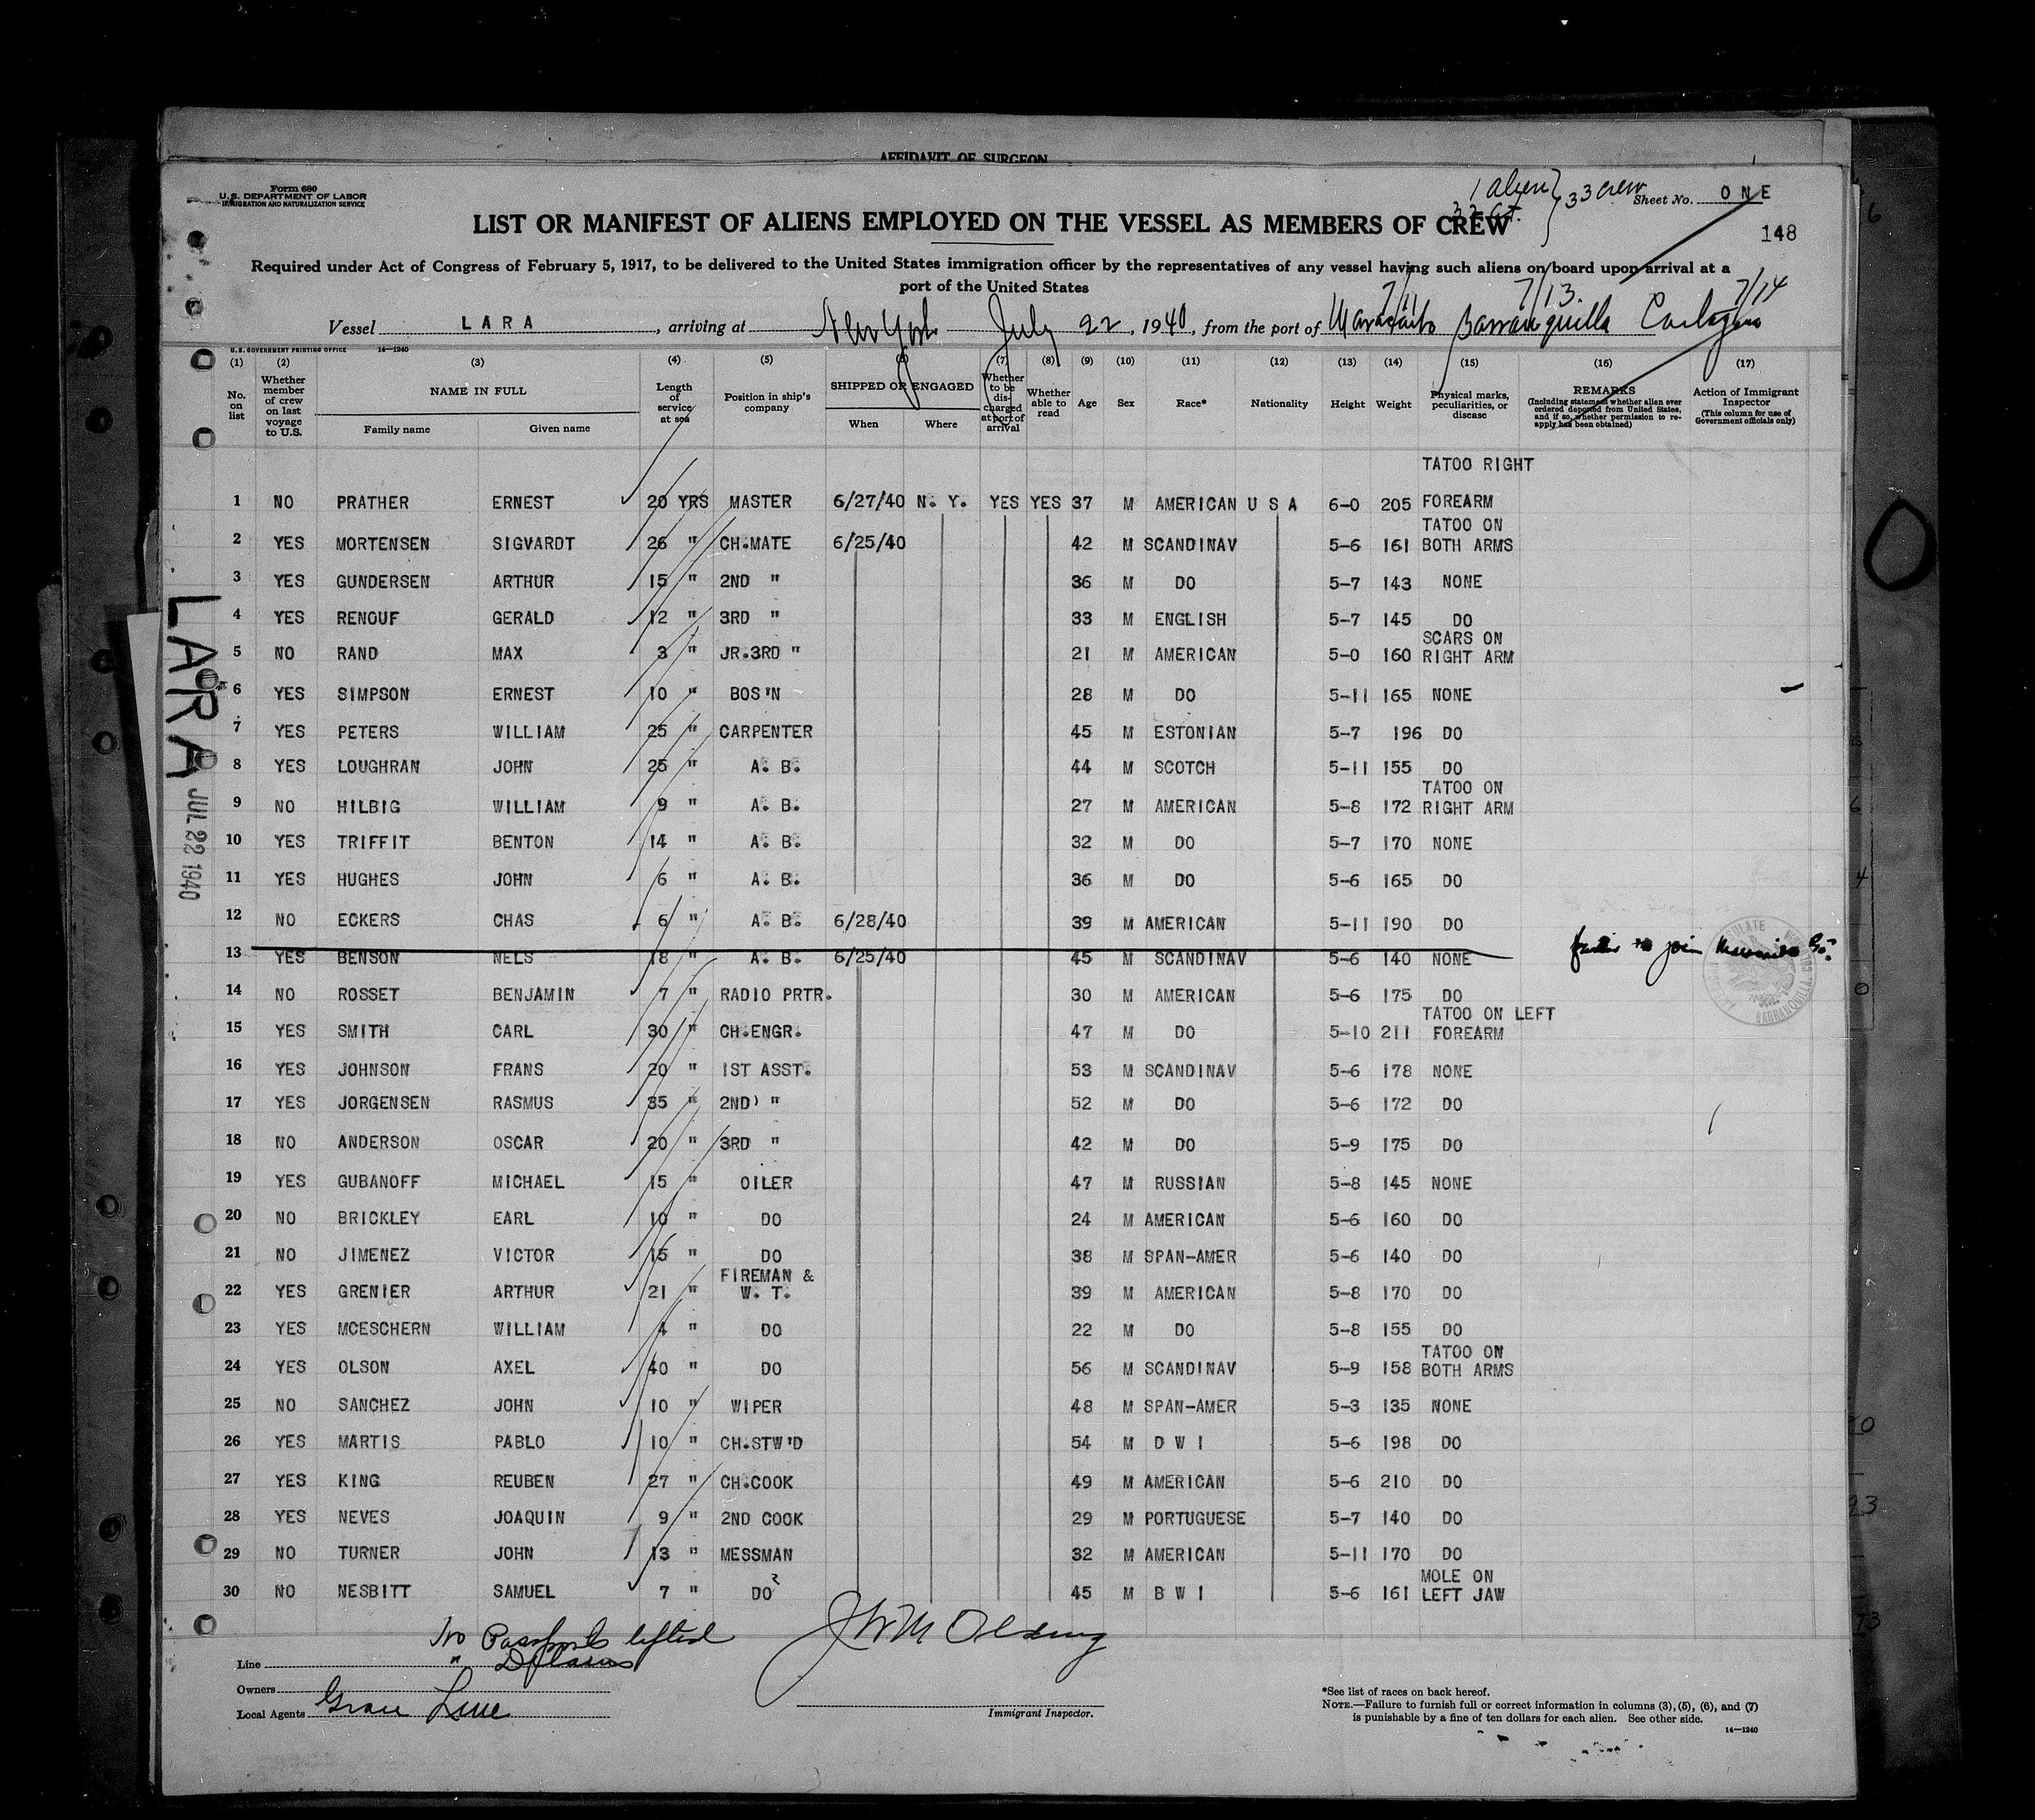 AFFIDAVIT OF SURGEON
Form 680
U.S. DEPARTMENT OF LABOR
IMMIGRATION AND NATURALIZATION SERVICE
1 alien } 33 crew
Sheet No. ONE
LIST OR MANIFEST OF ALIENS EMPLOYED ON THE VESSEL AS MEMBERS OF CREW
148
Required under Act of Congress of February 5, 1917, to be delivered to the United States immigration officer by the representatives of any vessel having such aliens on board upon arrival at a
port of the United States
7/11 7/13. 7/14
Vessel LARA, arriving at New York July 22, 1940, from the port of Maracaibo Barranquilla Cartagena
U.S. GOVERNMENT PRINTING OFFICE 14—1240
(1) (2) (3) (4) (5) (6) (7) (8) (9) (10) (11) (12) (13) (14) (15) (16) (17)
No. on list
Whether member of crew on last voyage to U.S.
NAME IN FULL
Family name Given name
Length of service at sea
Position in ship's company
SHIPPED OR ENGAGED
When Where
Whether to be discharged at port of arrival
Whether able to read
Age
Sex
Race*
Nationality
Height
Weight
Physical marks, peculiarities, or disease
REMARKS
(Including statement whether alien ever ordered deported from United States, and if so, whether permission to reapply has been obtained)
Action of Immigrant Inspector
(This column for use of Government officials only)
TATOO RIGHT
1 NO PRATHER ERNEST 20 YRS MASTER 6/27/40 N. Y. YES YES 37 M AMERICAN U S A 6-0 205 FOREARM
TATOO ON
2 YES MORTENSEN SIGVARDT 26 " CH.MATE 6/25/40 42 M SCANDINAV 5-6 161 BOTH ARMS
3 YES GUNDERSEN ARTHUR 15 " 2ND " 36 M DO 5-7 143 NONE
4 YES RENOUF GERALD 12 " 3RD " 33 M ENGLISH 5-7 145 DO
SCARS ON
5 NO RAND MAX 3 " JR.3RD " 21 M AMERICAN 5-0 160 RIGHT ARM
6 YES SIMPSON ERNEST 10 " BOS'N 28 M DO 5-11 165 NONE
7 YES PETERS WILLIAM 25 " CARPENTER 45 M ESTONIAN 5-7 196 DO
8 YES LOUGHRAN JOHN 25 " A. B. 44 M SCOTCH 5-11 155 DO
TATOO ON
9 NO HILBIG WILLIAM 9 " A. B. 27 M AMERICAN 5-8 172 RIGHT ARM
10 YES TRIFFIT BENTON 14 " A. B. 32 M DO 5-7 170 NONE
11 YES HUGHES JOHN 6 " A. B. 36 M DO 5-6 165 DO
12 NO ECKERS CHAS 6 " A. B. 6/28/40 39 M AMERICAN 5-11 190 DO
13 YES BENSON NELS 18 " A. B. 6/25/40 45 M SCANDINAV 5-6 140 NONE to join
14 NO ROSSET BENJAMIN 7 " RADIO PRTR. 30 M AMERICAN 5-6 175 DO
TATOO ON LEFT
15 YES SMITH CARL 30 " CH.ENGR. 47 M DO 5-10 211 FOREARM
16 YES JOHNSON FRANS 20 " 1ST ASST. 53 M SCANDINAV 5-6 178 NONE
17 YES JORGENSEN RASMUS 35 " 2ND " 52 M DO 5-6 172 DO
18 NO ANDERSON OSCAR 20 " 3RD " 42 M DO 5-9 175 DO
19 YES GUBANOFF MICHAEL 15 " OILER 47 M RUSSIAN 5-8 145 NONE
20 NO BRICKLEY EARL 10 " DO 24 M AMERICAN 5-6 160 DO
21 NO JIMENEZ VICTOR 15 " DO 38 M SPAN-AMER 5-6 140 DO
FIREMAN &
22 YES GRENIER ARTHUR 21 " W. T. 39 M AMERICAN 5-8 170 DO
23 YES MCESCHERN WILLIAM 4 " DO 22 M DO 5-8 155 DO
TATOO ON
24 YES OLSON AXEL 40 " DO 56 M SCANDINAV 5-9 158 BOTH ARMS
25 NO SANCHEZ JOHN 10 " WIPER 48 M SPAN-AMER 5-3 135 NONE
26 YES MARTIS PABLO 10 " CH.STW'D 54 M D W I 5-6 198 DO
27 YES KING REUBEN 27 " CH.COOK 49 M AMERICAN 5-6 210 DO
28 YES NEVES JOAQUIN 9 " 2ND COOK 29 M PORTUGUESE 5-7 140 DO
29 NO TURNER JOHN 13 " MESSMAN 32 M AMERICAN 5-11 170 DO
MOLE ON
30 NO NESBITT SAMUEL 7 " DO 45 M B W I 5-6 161 LEFT JAW
LARA
JUL 22 1940
BARRANQUILLA
No Passports lifted
Line "
Owners
Local Agents Grace Line
Immigrant Inspector.
*See list of races on back hereof.
NOTE.—Failure to furnish full or correct information in columns (3), (5), (6), and (7)
is punishable by a fine of ten dollars for each alien. See other side.
14—1240